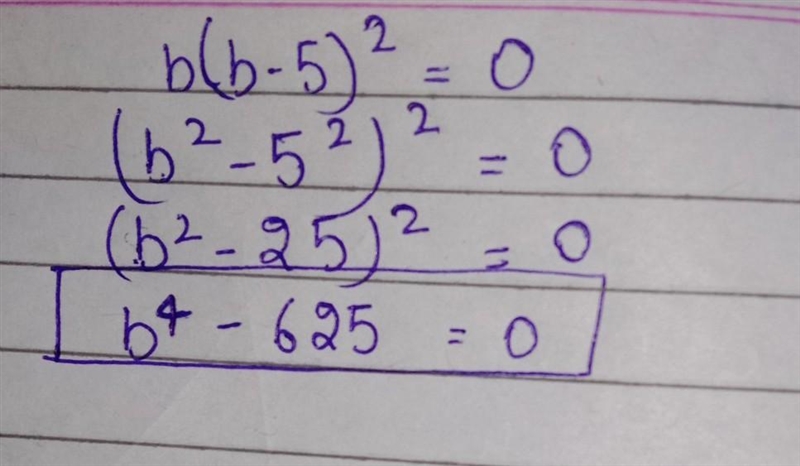 b(b-5)² = 0
(b² - 5²)² = 0
(b² - 25)² = 0
b⁴ - 625 = 0